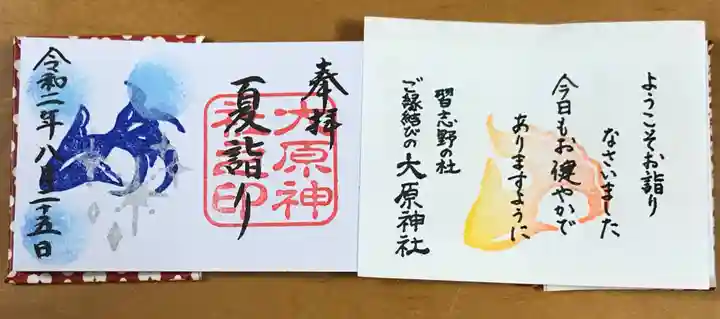 ようこそお詣り
なさいました
今日もお健やかで
ありますように
習志野の杜
ご縁結びの大原神社
奉拝
夏詣り
大原神
社
印
令和二年八月二十五日